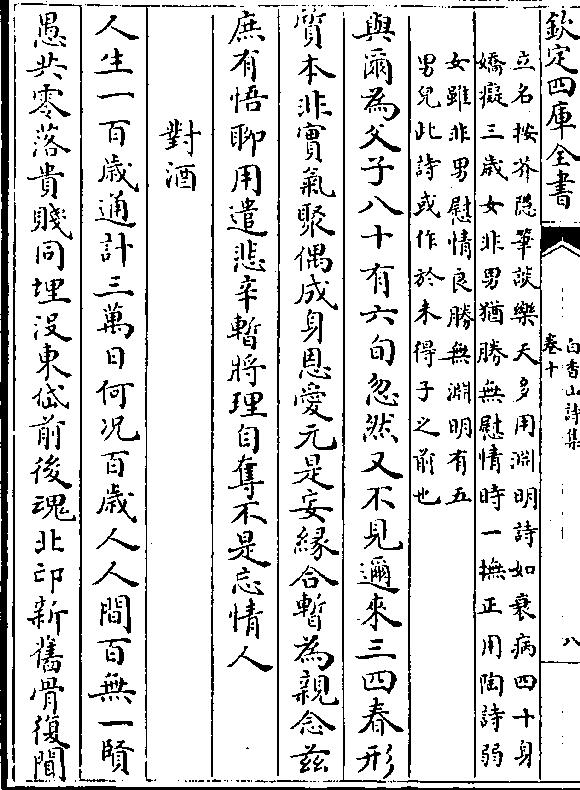 欽定四庫全書
白香山詩集
卷十
八
立名按芥隠筆談樂天多用淵明詩如衰病四十身
嬌癡三歲女非男猶勝無慰情時一撫正用陶詩弱
女雖非男慰情良勝無淵明有五
男兒此詩或作於未得子之前也
與爾為父子八十有六旬忽然又不見邇來三四春形
質本非實氣聚偶成身恩愛元是妄緣合暫為親念兹
庶有悟聊用遣悲辛暫將理自奪不是忘情人
對酒
人生一百歲通計三萬日何况百歲人人間百無一賢
愚共零落貴賤同埋沒東岱前後魂北邙新舊骨復聞